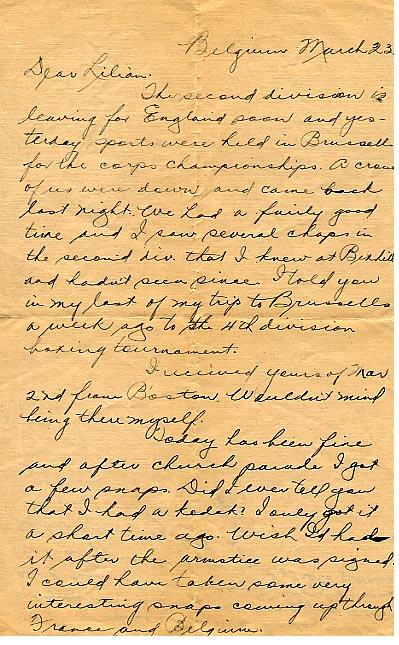 Belgium March 23.
Dear Lilian.
The second division is
leaving for England soon and yes-
terday sports were held in Brussells
for the corps championships. A crowd
of us were down and came back
last night. We had a fairly good
time and I saw several chaps in
the second div. that I knew at Bexhill
and hadn't seen since. I told you
in my last of my trip to Brussells
a week ago to the 4th division
boxing tournament.
I received yours of Mar
2nd from Boston. Wouldn't mind
being there myself.
Today has been fine
and after church parade I got
a few snaps. Did I ever tell you
that I had a kodak? I only got it
a short time ago. Wish I'd had
it after the armstice was signed.
I could have taken some very
interesting snaps coming up through
France and Belgium.